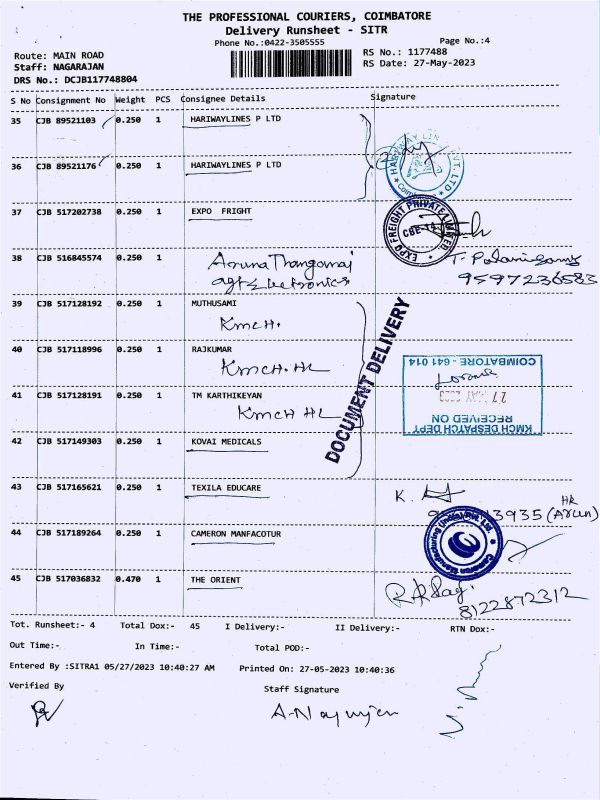 THE PROFESSIONAL COURIERS, COIMBATORE
Delivery Runsheet - SITR
Phone No.:0422-3505555
Page No.:4
Route: MAIN ROAD
RS No.: 1177488
Staff: NAGARAJAN
RS Date: 27-May-2023
DRS No.: DCJB117748804
S No Consignment No Weight PCS Consignee Details Signature
35 CJB 89521103 0.250 1 HARIWAYLINES P LTD
36 CJB 89521176 0.250 1 HARIWAYLINES P LTD
37 CJB 517202738 0.250 1 EXPO FRIGHT
EXPO FREIGHT PRIVATE LIMITED
CBE-14
38 CJB 516845574 0.250 1
9597236583
39 CJB 517128192 0.250 1 MUTHUSAMI
KMCH.
40 CJB 517118996 0.250 1 RAJKUMAR
KMCH. HL
41 CJB 517128191 0.250 1 TM KARTHIKEYAN
KMCH HL
DOCUMENT DELIVERY
KMCH DESPATCH DEPT
RECEIVED ON
27 MAY 2023
COIMBATORE - 641 014
42 CJB 517149303 0.250 1 KOVAI MEDICALS
43 CJB 517165621 0.250 1 TEXILA EDUCARE
HR
(Arun)
44 CJB 517189264 0.250 1 CAMERON MANFACOTUR
Cameron Manufacturing (India) Pvt. Ltd.
45 CJB 517036832 0.470 1 THE ORIENT
8122872312
Tot. Runsheet:- 4 Total Dox:- 45 I Delivery:- II Delivery:- RTN Dox:-
Out Time:- In Time:- Total POD:-
Entered By :SITRA1 05/27/2023 10:40:27 AM Printed On: 27-05-2023 10:40:36
Verified By Staff Signature